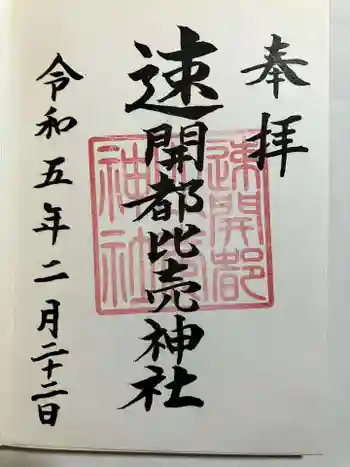 奉拝
速開都比売神社
速開都
比売
神社
令和五年二月二十二日